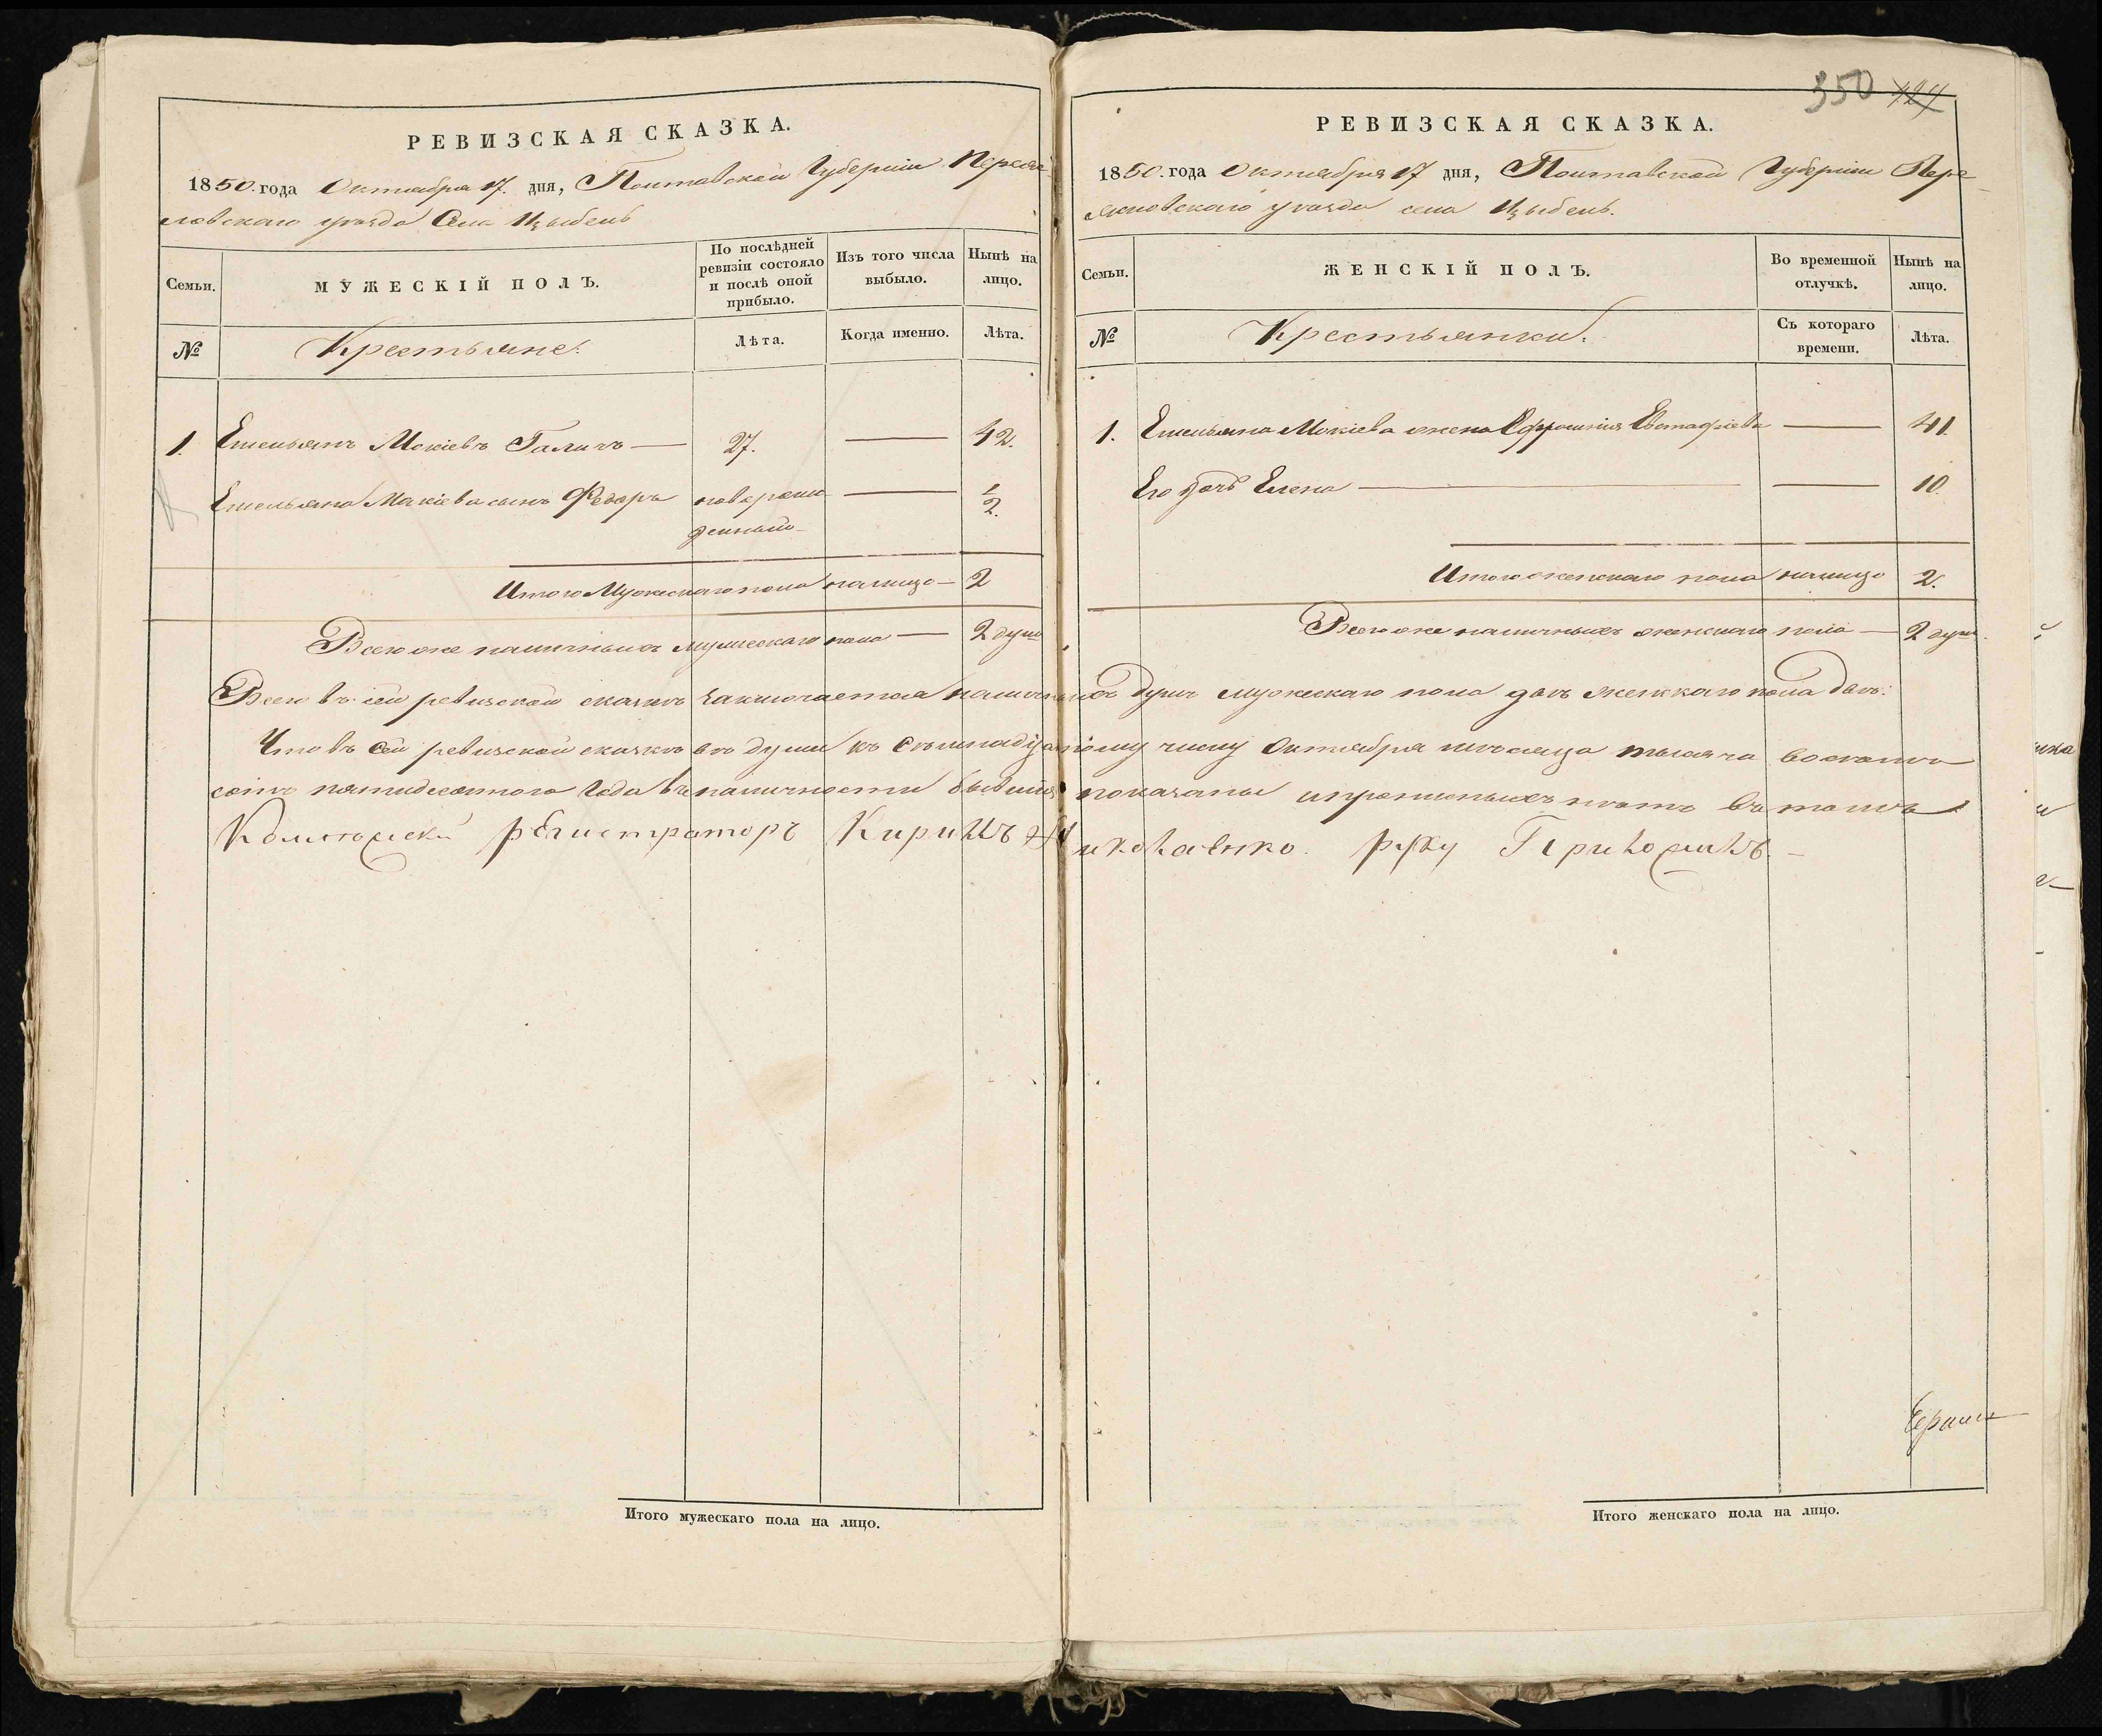 350 424
РЕВИЗСКАЯ СКАЗКА.
1850. года Октября 17. дня, Полтавской Губерніи Перея-
словскаго уѣзда Села Цыбель
Семьи.
МУЖЕСКІЙ ПОЛЪ.
По послѣдней ревизіи состояло и послѣ оной прибыло.
Изъ того числа выбыло.
Нынѣ на лицо.
№
Крестьяне.
Лѣта.
Когда именно.
Лѣта.
1. Емельянъ Мокіевъ Галичъ — 27. — 42.
Емельяна Мокіева сынъ Федоръ новорож- — 1/2.
денный
Итого Мужескаго пола налицо — 2
Всего же наличныхъ мужескаго пола — 2 душ
РЕВИЗСКАЯ СКАЗКА.
1850. года Октября 17 дня, Полтавской Губерніи Пере-
яславскаго уѣзда села Цыбель.
Семьи.
ЖЕНСКІЙ ПОЛЪ.
Во временной отлучкѣ.
Нынѣ на лицо.
№
Крестьянки.
Съ котораго времени.
Лѣта.
1. Емельяна Мокіева жена Ефросинія Евстафіева — 41.
Его дочь Елена — — 10.
Итого женскаго пола налицо 2.
Всего же наличныхъ женскаго пола — 2 душ.
Всего въ сей ревизской сказкѣ заключается наличныхъ душъ мужескаго пола двѣ женскаго пола двѣ.
Что въ сей ревизской сказкѣ всѣ души къ Семнадцатому числу Октября мѣсяца тысяча восемь
сотъ пятидесятого Года въ наличности бывшія показаны и прописныхъ нѣтъ въ томъ
Колѣжскій рЕгистраторъ Кирилъ Николаенко. руку Приложилъ. —
Итого мужескаго пола на лицо.
Итого женскаго пола на лицо.